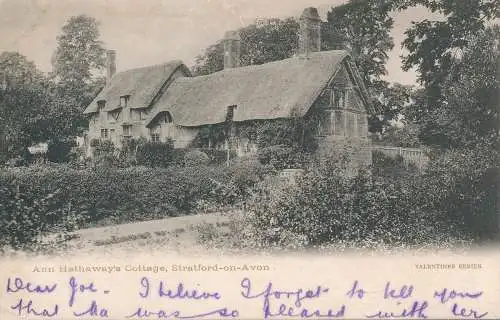 Ann Hathaway's Cottage, Stratford-on-Avon
VALENTINES SERIES
Dear Joe. I believe I forgot to tell you
that Ma was so pleased with her